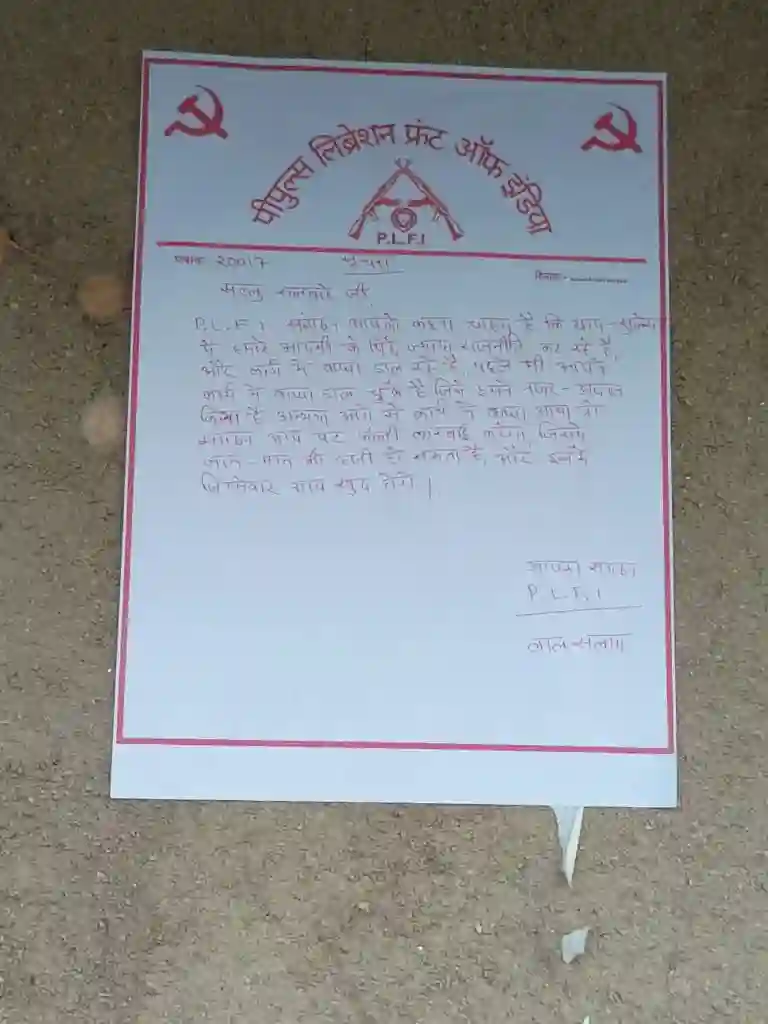 पीपुल्स लिब्रेशन फ्रंट ऑफ इंडिया
P.L.F.I
पत्रांक 20017 सूचना दिनांक:-
जी
P.L.F.I संगठन आपको कहना चाहता है कि आप
में हमारे आदमी के पीछे ज्यादा राजनीति कर रहे हैं,
और कार्य में बाधा डाल रहे हैं, पहले भी आपने
कार्य में बाधा डाल चुके हैं जिसे हमने नजर-अंदाज
किया है अन्यथा आगे से कार्य में बाधा आया तो
संगठन आप पर फौजी कारवाई करेगा, जिसमें
जान-माल की हानी हो सकता है, और इसके
जिम्मेवार आप खुद होंगे।
आपका संगठन
P.L.F.I
लाल-सलाम